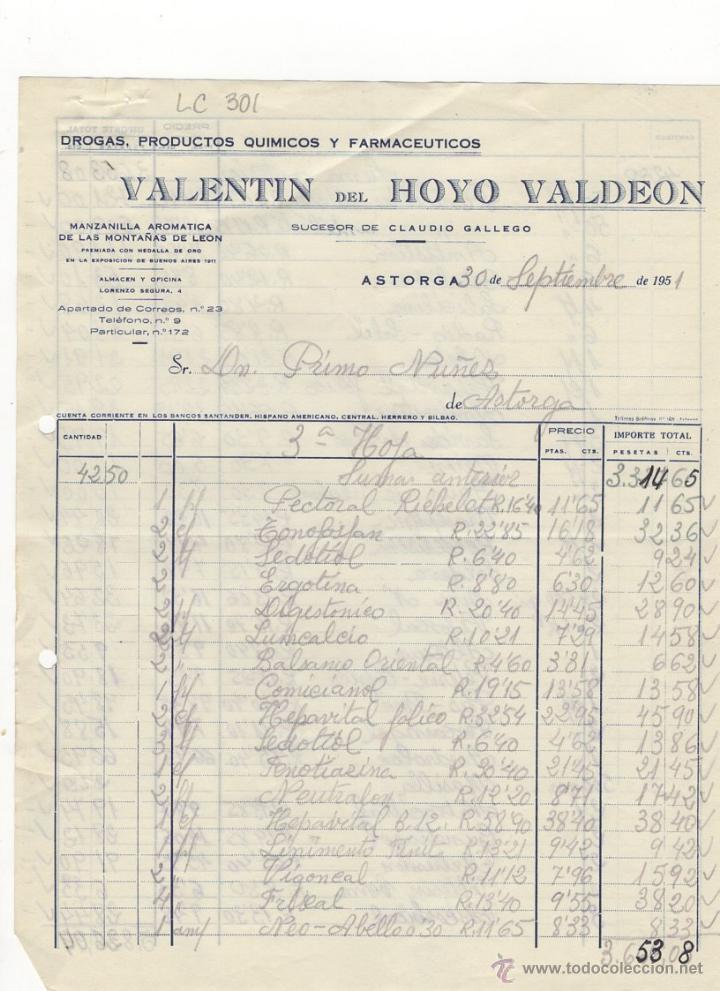 LC 301
DROGAS, PRODUCTOS QUIMICOS Y FARMACEUTICOS
VALENTIN DEL HOYO VALDEON
MANZANILLA AROMATICA
DE LAS MONTAÑAS DE LEON
PREMIADA CON MEDALLA DE ORO
EN LA EXPOSICION DE BUENOS AIRES 1911
ALMACEN Y OFICINA
LORENZO SEGURA, 4
Apartado de Correos, n.º 23
Teléfono, n.º 9
Particular, n.º 172
SUCESOR DE CLAUDIO GALLEGO
ASTORGA 30 de Septiembre de 1951
Sr. Dn. Primo Nuñez
de Astorga
CUENTA CORRIENTE EN LOS BANCOS SANTANDER, HISPANO AMERICANO, CENTRAL, HERRERO Y BILBAO.
CANTIDAD PRECIO IMPORTE TOTAL
PTAS. CTS. PESETAS CTS.
3ª Hoja
4250 Suma anterior 3.314 65
1 Pectoral Richelet R.16'40 11'65 11 65
2 Tonofosfan R.22'85 16'18 32 36
2 Sedotiol R.6'40 4'62 9 24
2 Ergotina R.8'80 6'30 12 60
2 Digestonico R.20'40 14'45 28 90
2 Lumcalcio R.10'21 7'29 14 58
2 " Balsamo Oriental R.4'60 3'31 6 62
1 R.19'15 13'58 13 58
2 Hepavital folico R.32'54 22'95 45 90
3 Sedotiol R.6'40 4'62 13 86
1 Fenotiazina R.30'40 21'45 21 45
2 R.12'20 8'71 17 42
1 Hepavital B.12 R.58'90 38'40 38 40
1 Linimento R.13'21 9'42 9 42
2 " Vigoncal R.11'12 7'96 15 92
4 R.13'40 9'55 38 20
1 Neo-Abello 0 30 R.11'65 8'33 8 33
3.653 08
www.todocoleccion.net